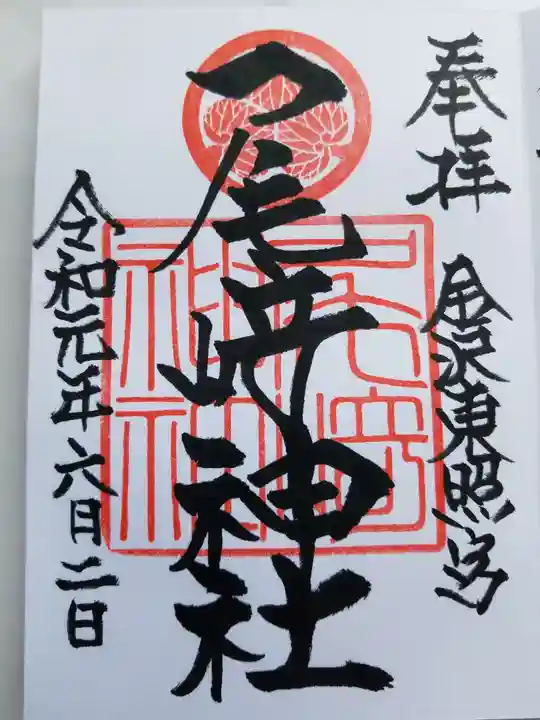 奉拝
金沢東照宮
尾崎神社
尾崎神社
令和元年六月二日